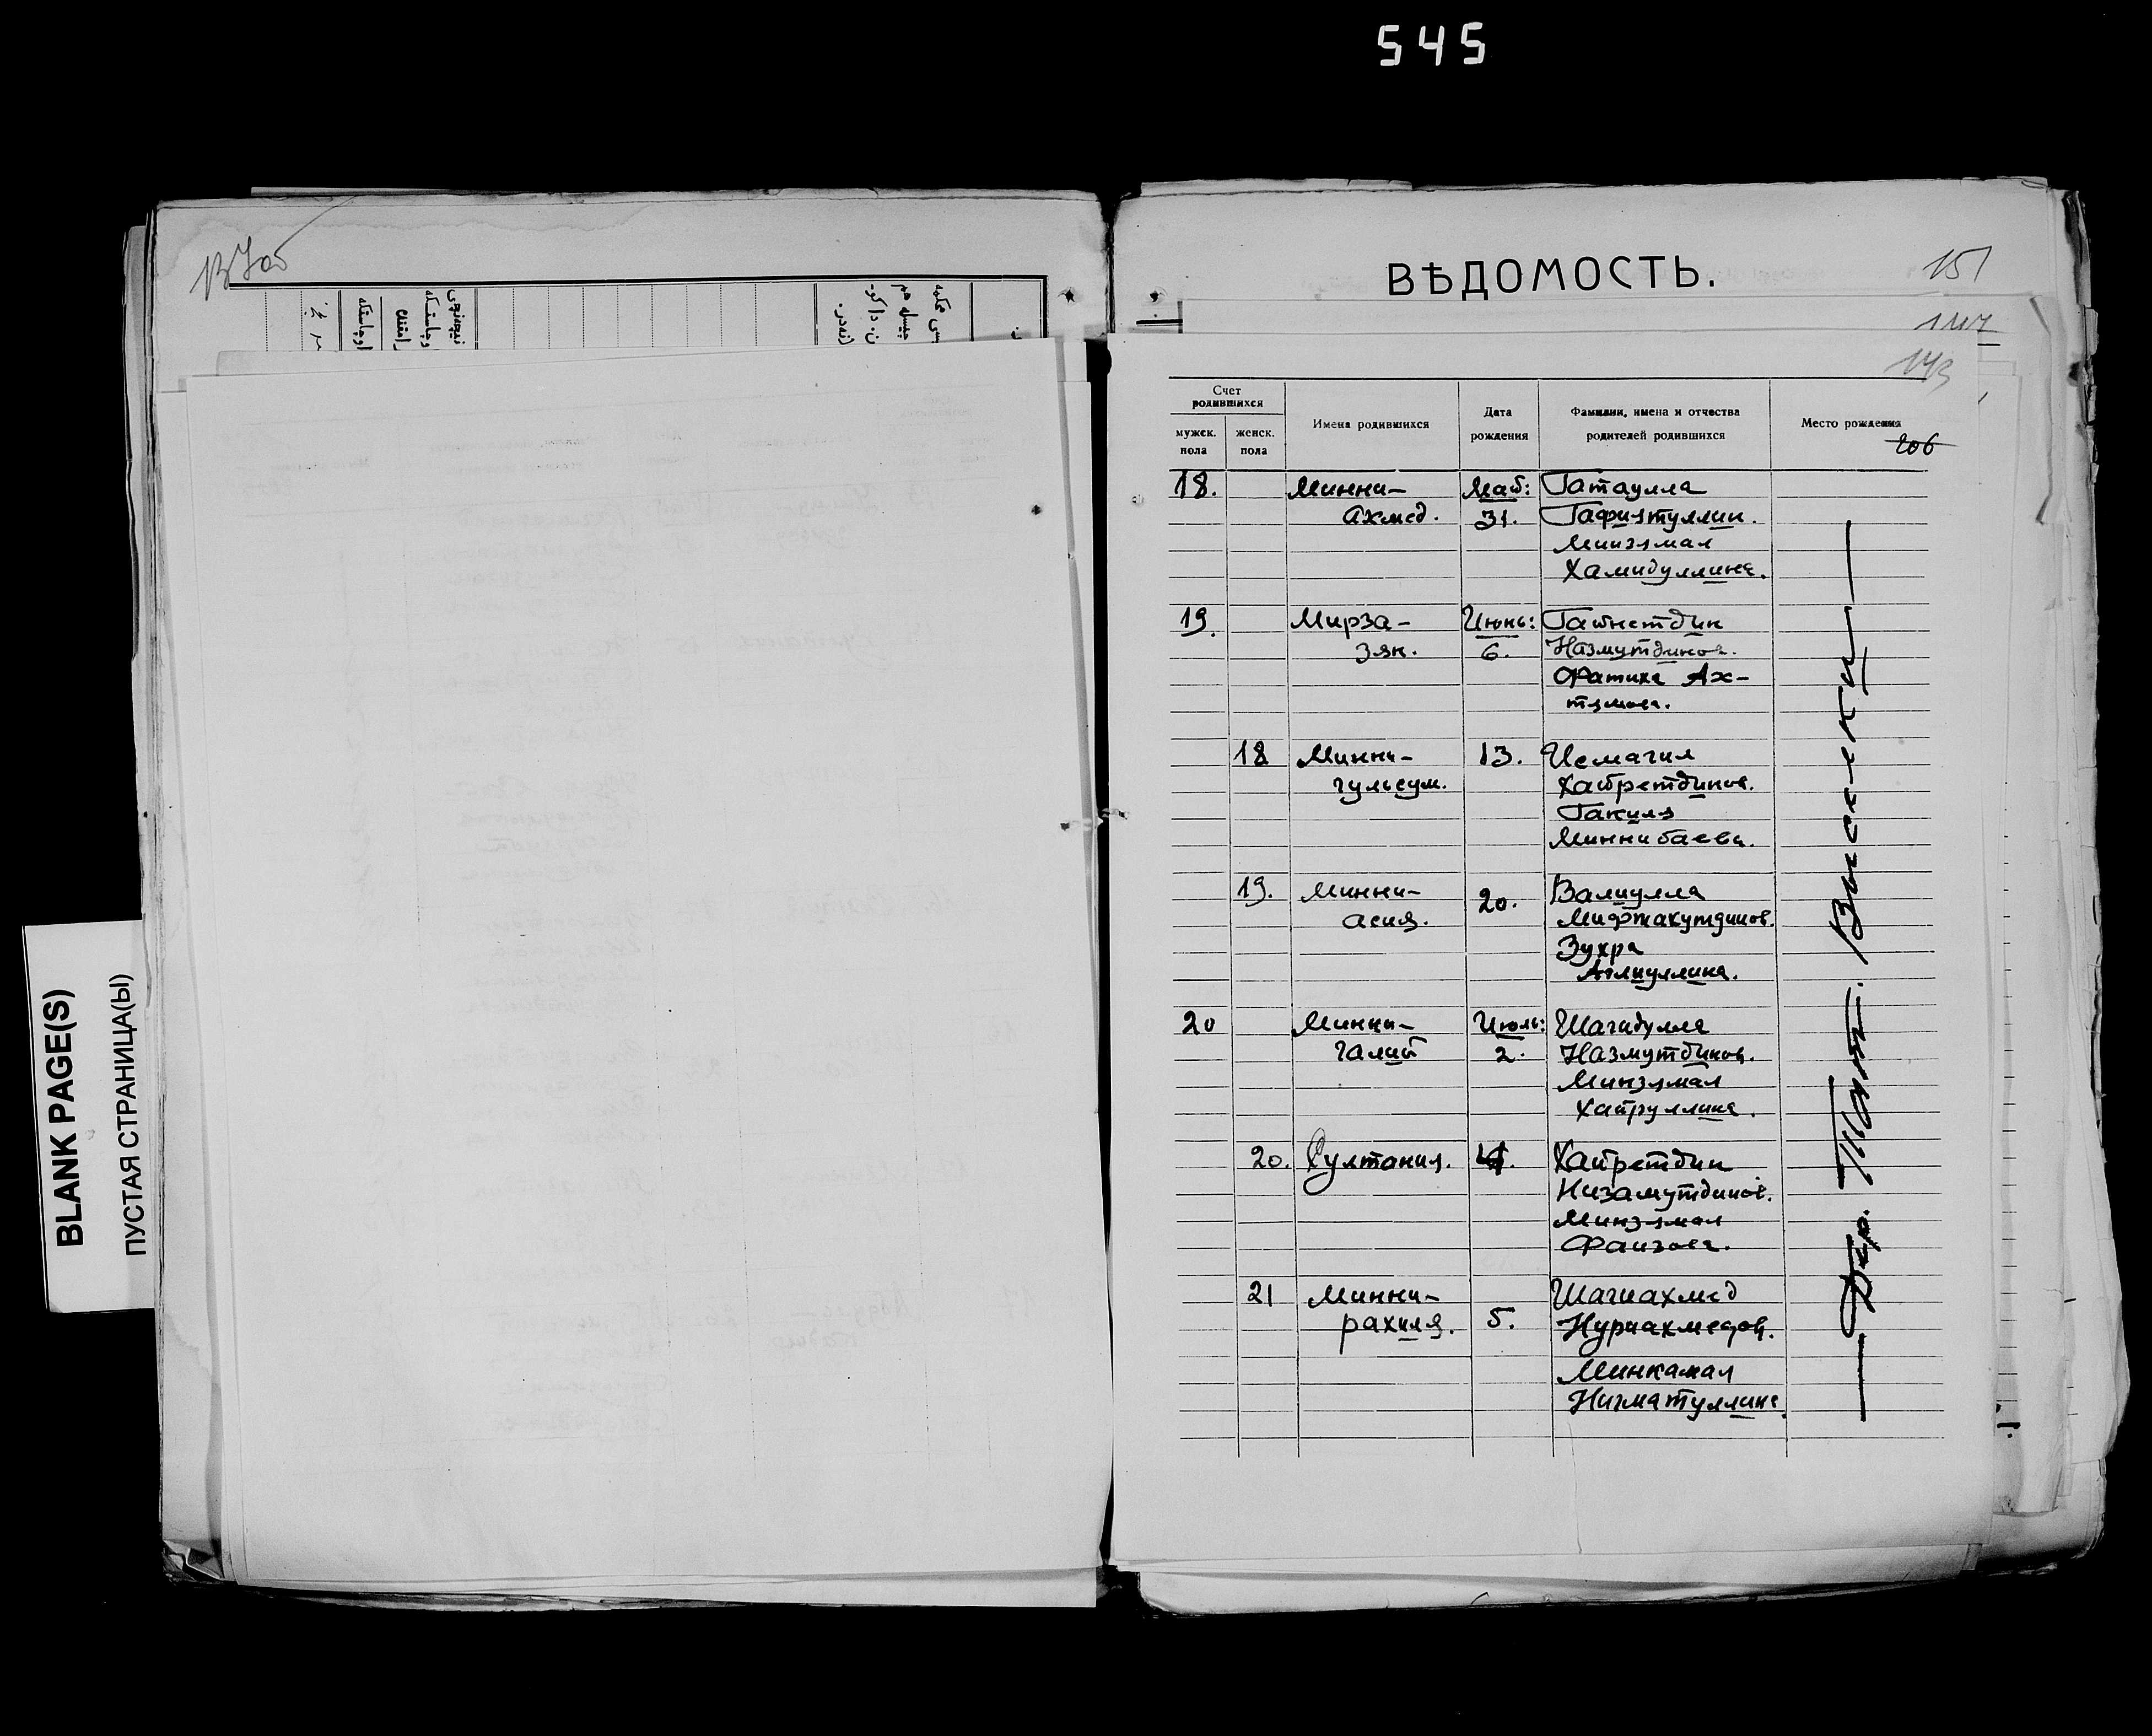 545
ВѢДОМОСТЬ.
151
147
143
BLANK PAGE(S)
ПУСТАЯ СТРАНИЦА(Ы)
Счет родившихся
мужск. пола
женск. пола
Имена родившихся
Дата рождения
Фамилии, имена и отчества родителей родившихся
Место рождения
206
18. Минни- Май: Гатаулла
Ахмед. 31. Гафиятуллин.
Минзямал
Хамидуллина.
19. Мирза- Июнь: Гайнетдин
Зян. 6. Назмутдинов.
Фатиха Ах-
тямова.
18 Минни- 13. Исмагил
гульсум. Хайретдинов.
Гакиля
Миннибаева.
19. Минни- 20. Валиулла
асия. Мифтахутдинов.
Зухра
Аглиуллина.
20 Минни- Июль: Шагидулла
галий 2. Назмутдинов.
Минзямал
Хайруллина.
20. Султания. 4. Хайретдин
Низамутдинов.
Минзямал
Фаизова.
21 Минни- Шагиахмед
рахиля. 5. Нуриахмедов.
Минкамал
Нигматуллина
Дер. Выселки